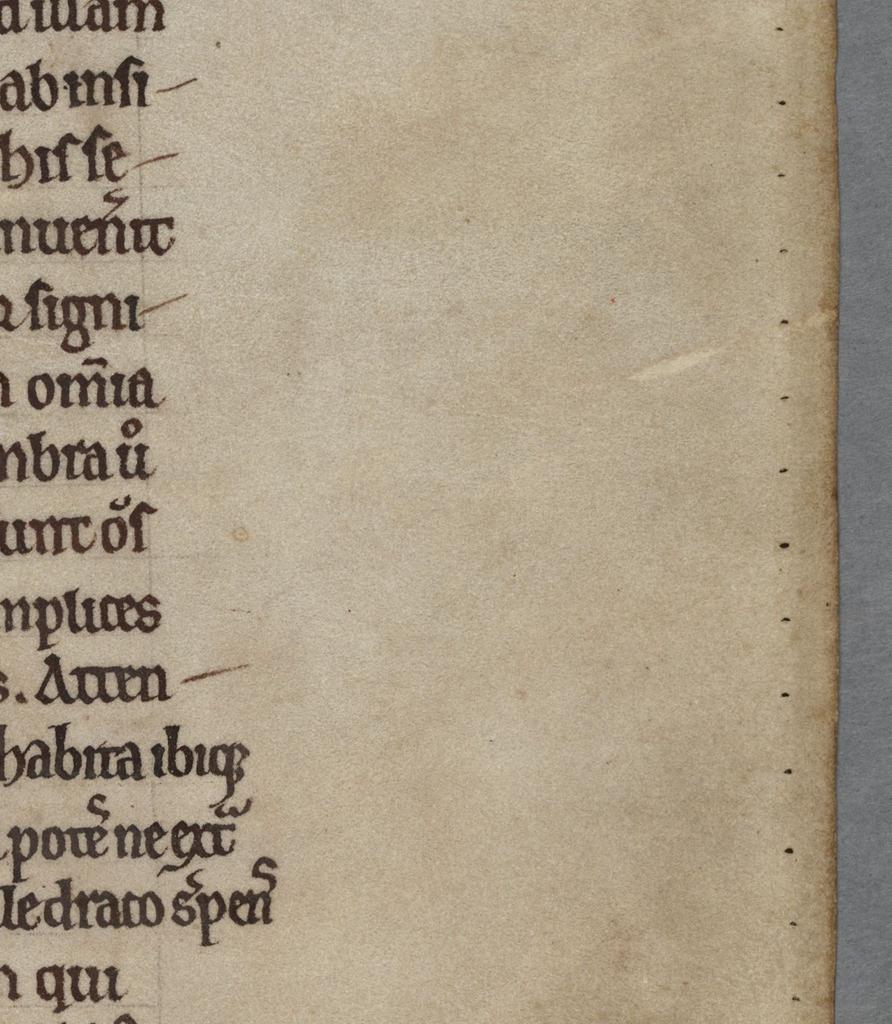 d illam
ab insi-
his se-
nuen̄it
ꝛ signi-
a om̄ia
mbra uͦ
unt oͦs
mplices
s. Atten-
habita ibiqꝫ
pote᷒ ne ext᷑
lle draco s᷑pen᷒
n qui